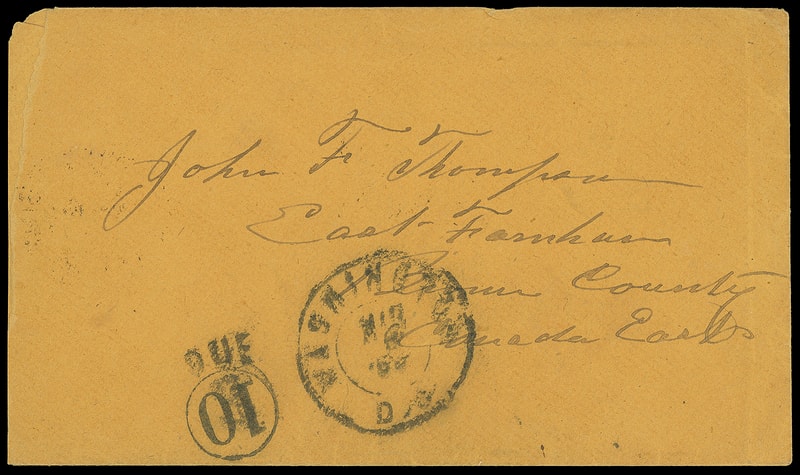 John F. Thompson
East Farnham
County
Canada East
WASHINGTON
D.C.
DUE
10